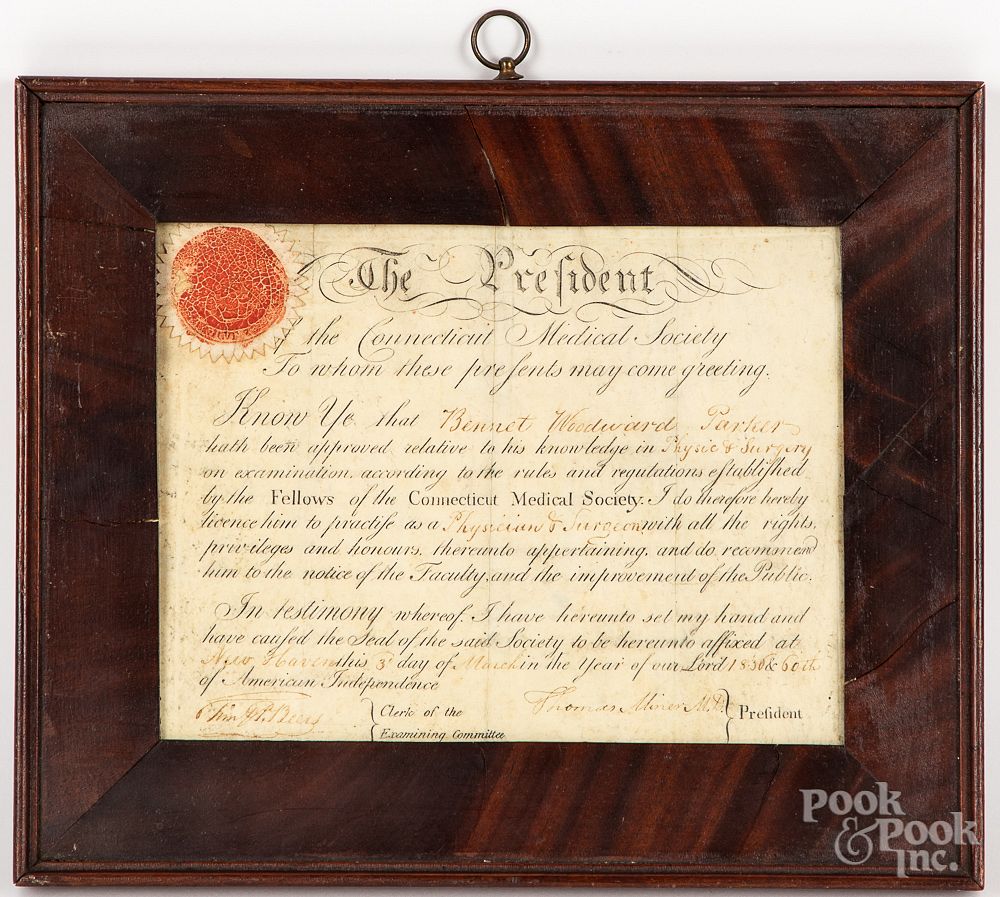 The President
the Connecticut Medical Society
To whom these presents may come greeting.
Know Ye that Bennet Woodward Parker
hath been approved relative to his knowledge in Physic & Surgery
on examination according to the rules and regulations eſtabliſhed
by the Fellows of the Connecticut Medical Society. I do therefore hereby
licence him to practiſe as a Physician & Surgeon with all the rights,
privileges and honours, thereunto appertaining, and do recommend
him to the notice of the Faculty, and the improvement of the Public.
In testimony whereof I have hereunto set my hand and
have cauſed the Seal of the said Society to be hereunto affixed at
New Haven this 3d day of March in the Year of our Lord 1836 & 60th
of American Independence
Beers
Clerk of the
Examining Committee
Thomas Miner M.D.
Preſident
POOK
& POOK
INC.